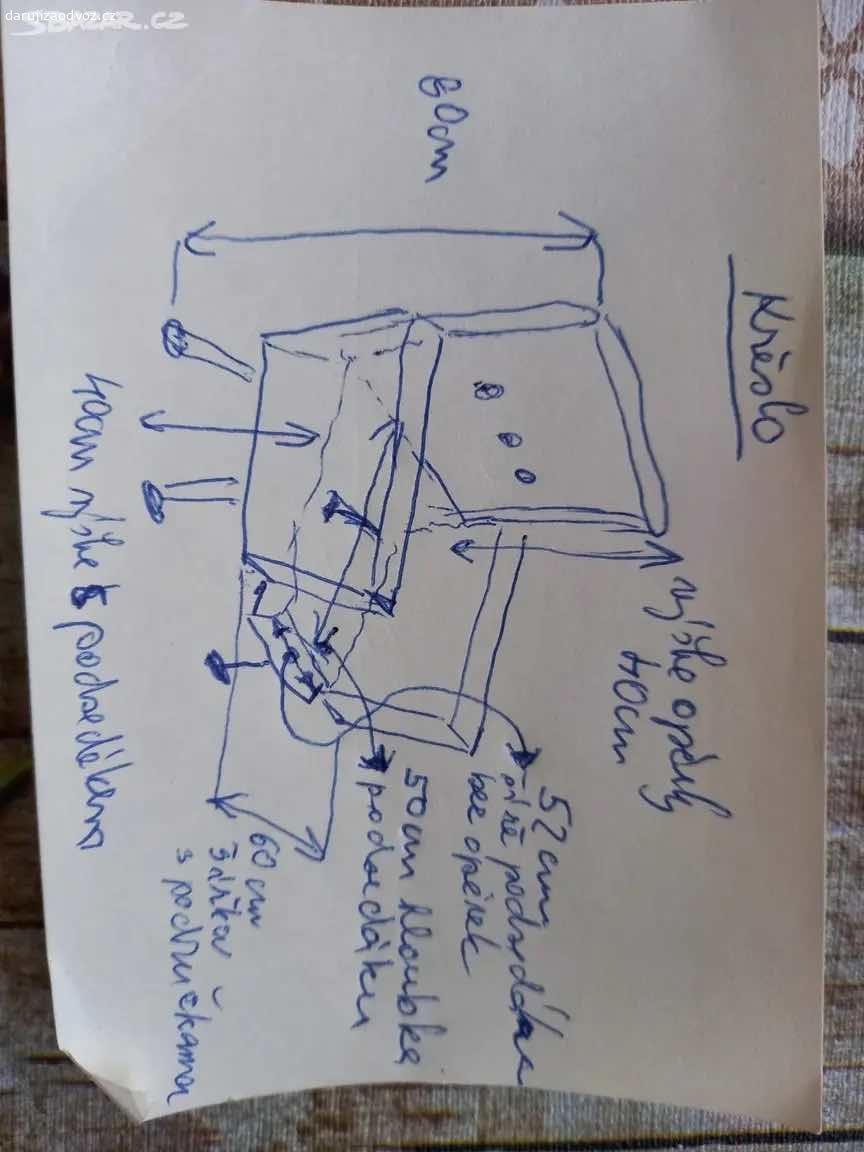 darujizaodvoz.cz
SBAZAR.CZ
Křeslo
80cm
výška opěrky
40cm
52 cm
šíře podsedáku
bez opěrek
50cm hloubka
podsedáku
60 cm
šířka
s područkama
40cm výška
podsedákem